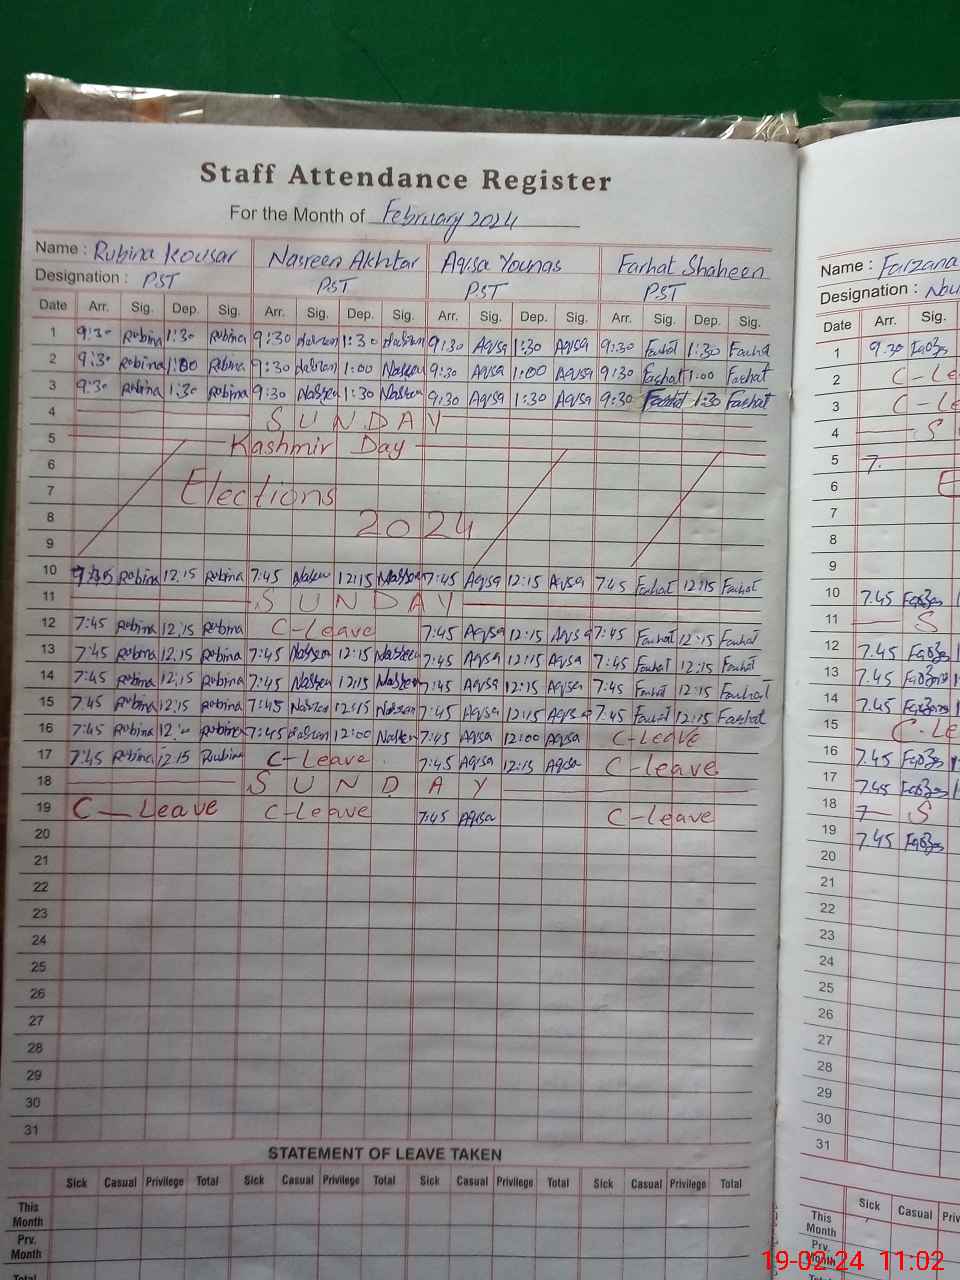 Staff Attendance Register
For the Month of February 2024
Name : Rubina Kousar Nasreen Akhtar Aqsa Younas Farhat Shaheen
Designation : PST PST PST PST
Date Arr. Sig. Dep. Sig. Arr. Sig. Dep. Sig. Arr. Sig. Dep. Sig. Arr. Sig. Dep. Sig.
1 9:30 Rubina 1:30 Rubina 9:30 Nasreen 1:30 Nasreen 9:30 Aqsa 1:30 Aqsa 9:30 Farhat 1:30 Farhat
2 9:30 Rubina 1:00 Rubina 9:30 Nasreen 1:00 Nasreen 9:30 Aqsa 1:00 Aqsa 9:30 Farhat 1:00 Farhat
3 9:30 Rubina 1:30 Rubina 9:30 Nasreen 1:30 Nasreen 9:30 Aqsa 1:30 Aqsa 9:30 Farhat 1:30 Farhat
4 SUNDAY
5 Kashmir Day
6
7 Elections
8 2024
9
10 7:45 Rubina 12:15 Rubina 7:45 Nasreen 12:15 Nasreen 7:45 Aqsa 12:15 Aqsa 7:45 Farhat 12:15 Farhat
11 SUNDAY
12 7:45 Rubina 12:15 Rubina C-Leave 7:45 Aqsa 12:15 Aqsa 7:45 Farhat 12:15 Farhat
13 7:45 Rubina 12:15 Rubina 7:45 Nasreen 12:15 Nasreen 7:45 Aqsa 12:15 Aqsa 7:45 Farhat 12:15 Farhat
14 7:45 Rubina 12:15 Rubina 7:45 Nasreen 12:15 Nasreen 7:45 Aqsa 12:15 Aqsa 7:45 Farhat 12:15 Farhat
15 7:45 Rubina 12:15 Rubina 7:45 Nasreen 12:15 Nasreen 7:45 Aqsa 12:15 Aqsa 7:45 Farhat 12:15 Farhat
16 7:45 Rubina Rubina 7:45 Nasreen 12:00 Nasreen 7:45 Aqsa 12:00 Aqsa C-Leave
17 7:45 Rubina 12:15 Rubina C-Leave 7:45 Aqsa 12:15 Aqsa C-Leave
18 SUNDAY
19 C-Leave C-Leave 7:45 Aqsa C-Leave
20
21
22
23
24
25
26
27
28
29
30
31
STATEMENT OF LEAVE TAKEN
Sick Casual Privilege Total Sick Casual Privilege Total Sick Casual Privilege Total Sick Casual Privilege Total
This Month
Prv. Month
Total
Name : Farzana
Designation :
Date Arr. Sig.
1 9.30
2 C-Le
3 C-Le
4 S
5 7.
6 E
7
8
9
10 7.45
11 S
12 7.45
13 7.45
14 7.45
15 C-Le
16 7.45
17 7.45
18 7 S
19 7.45
20
21
22
23
24
25
26
27
28
29
30
31
Sick Casual Priv
This Month
Prv. Month
Total
19-02-24 11:02